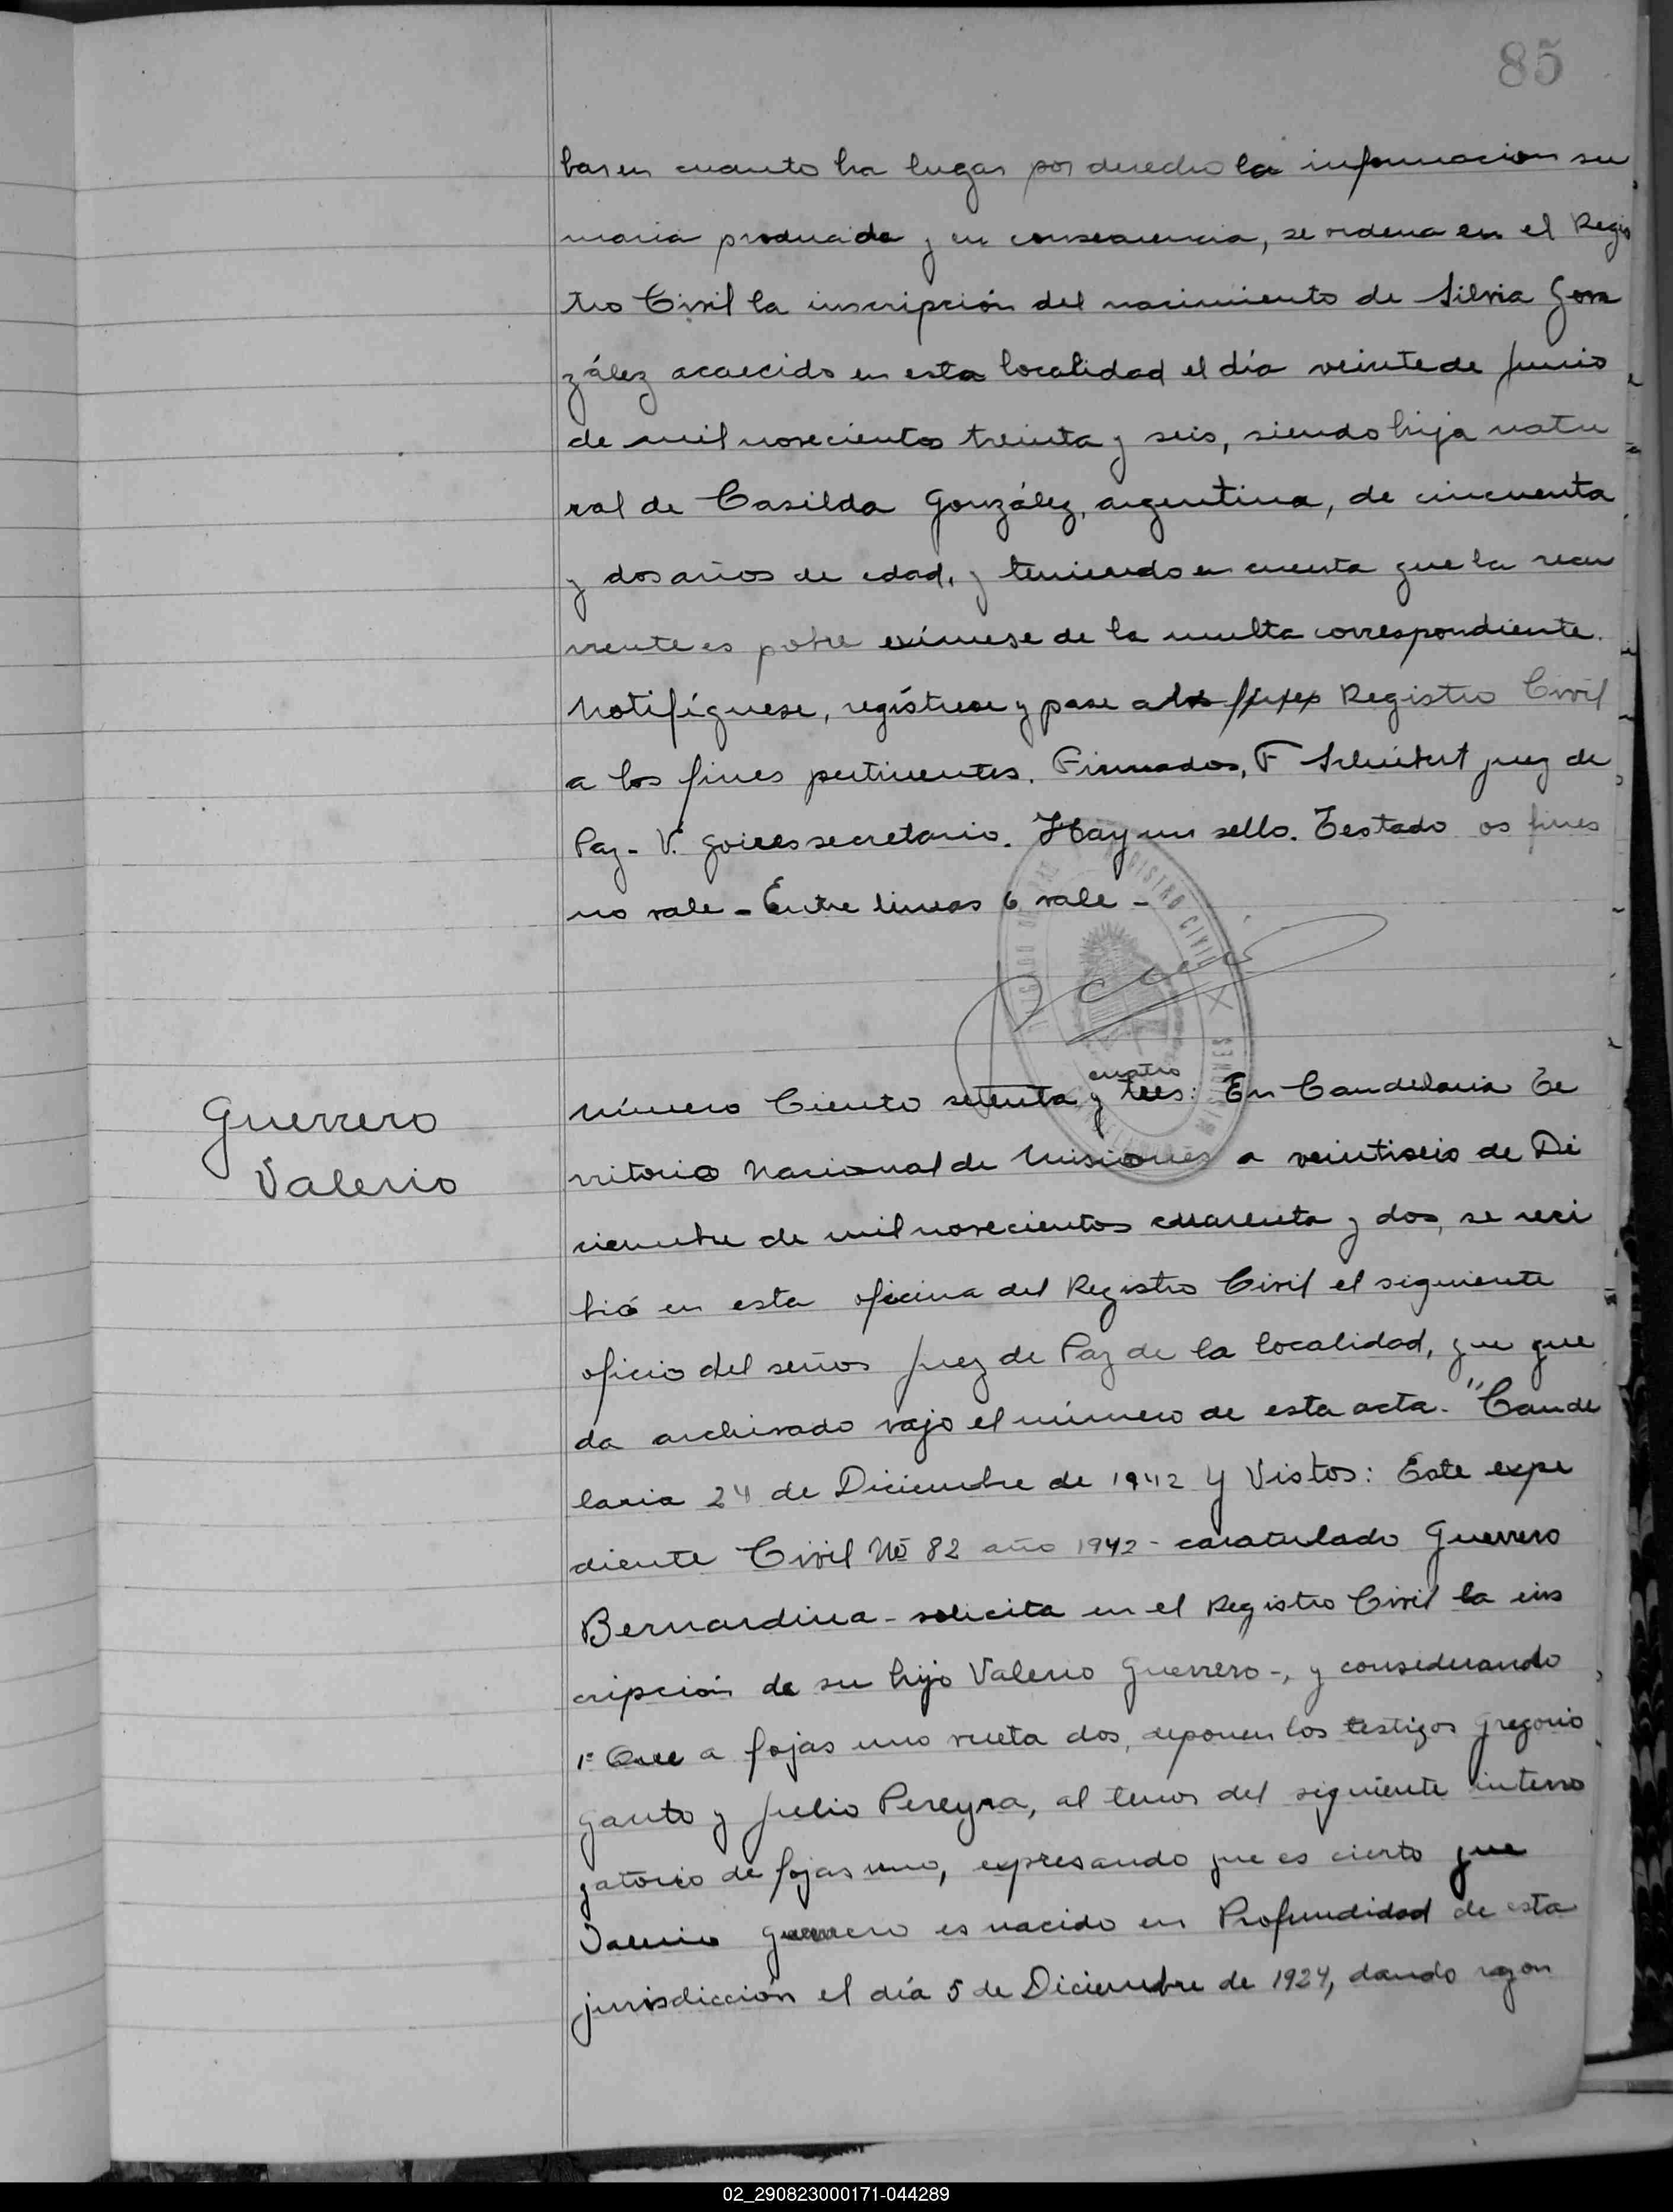 85
bar en cuanto ha lugar por derecho la informacion su
maria producida y en consecuencia, se ordena en el Regis
tro Civil la inscripción del nacimiento de Silvia Gon
zález acaecido en esta localidad el día veinte de Junio
de mil novecientos treinta y seis, siendo hija natu
ral de Casilda González, argentina, de cincuenta
y dos años de edad, y teniendo en cuenta que la recu
rrente es pobre exímese de la multa correspondiente.
Notifíquese, regístrese y pase a los fines Registro Civil
a los fines pertinentes. Firmados, F juez de
Paz - V. secretario. Hay un sello. Testado os fines
no vale - Entre lineas 6 vale -
REGISTRO CIVIL
Guerrero
Valerio
cuatro
Número Ciento setenta y tres: En Candelaria Te
rritorio Nacional de Misiones a veintiseis de Di
ciembre de mil novecientos cuarenta y dos, se reci
bió en esta oficina del Registro Civil el siguiente
oficio del señor Juez de Paz de la localidad, que que
da archivado vajo el número de esta acta. "Cande
laria 24 de Diciembre de 1942 Y Vistos: Este expe
diente Civil Nº 82 año 1942 - caratulado Guerrero
Bernardina - solicita en el Registro Civil la ins
cripción de su hijo Valerio Guerrero -, y considerando
1º Que a fojas uno vuelta dos, deponen los testigos Gregorio
Gauto y Julio Pereyra, al tenor del siguiente interro
gatorio de fojas uno, expresando que es cierto que
Valerio Guerrero es nacido en Profundidad de esta
jurisdicción el día 5 de Diciembre de 1924, dando razon
02_290823000171-044289